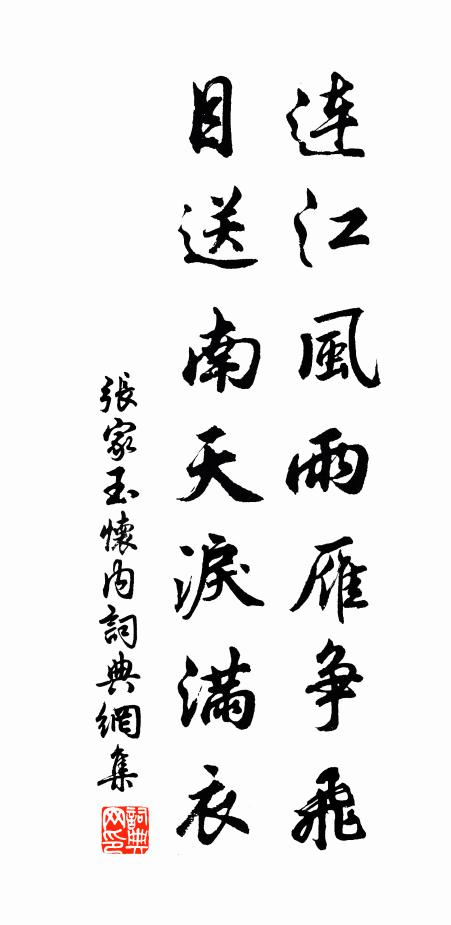 連江風雨雁爭飛
目送南天淚滿衣
張家玉懷內詞典網集
詞典網印